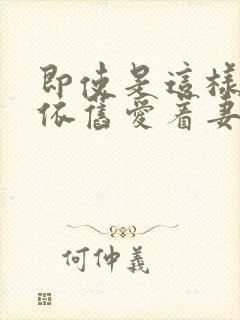 即使是這樣
依舊愛着妻
何仲義